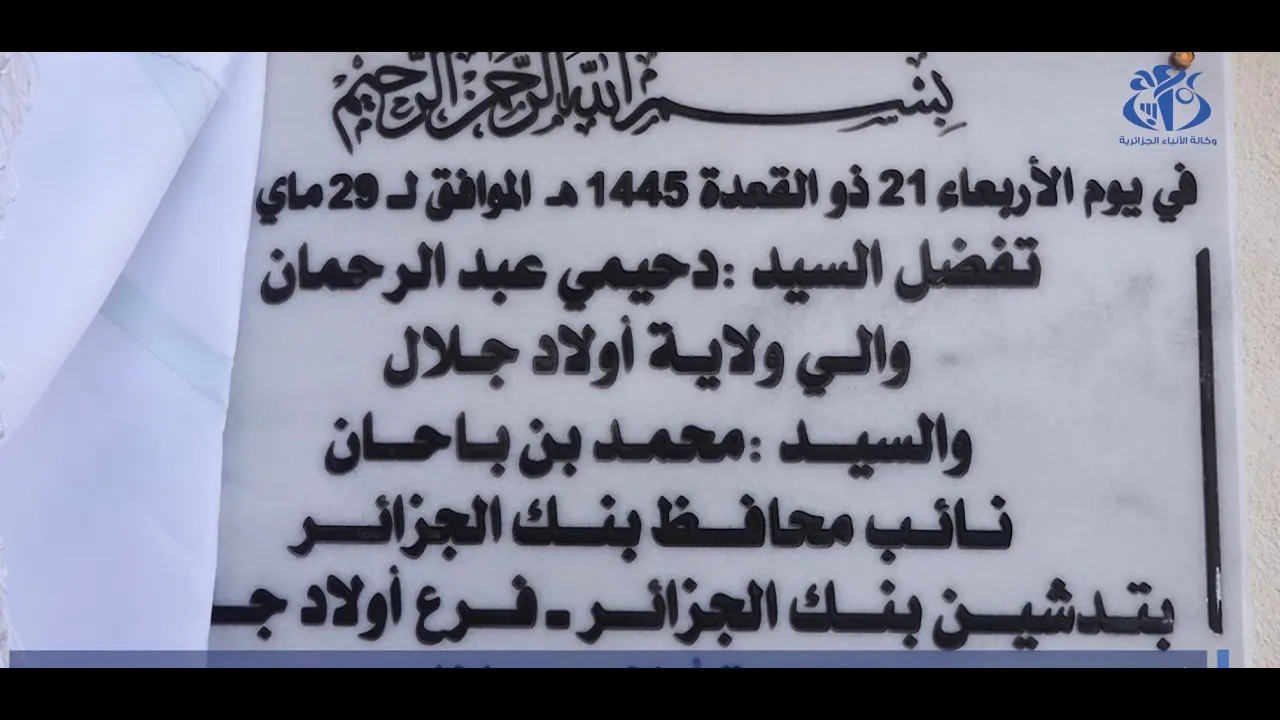 بسم الله الرحمن الرحيم
وكالة الأنباء الجزائرية
في يوم الأربعاء 21 ذو القعدة 1445 هـ الموافق لـ 29 ماي
تفضل السيد :دحيمي عبد الرحمان
والي ولاية أولاد جلال
والسيد :محمد بن باحان
نائب محافظ بنك الجزائر
بتدشين بنك الجزائر - فرع أولاد جـ